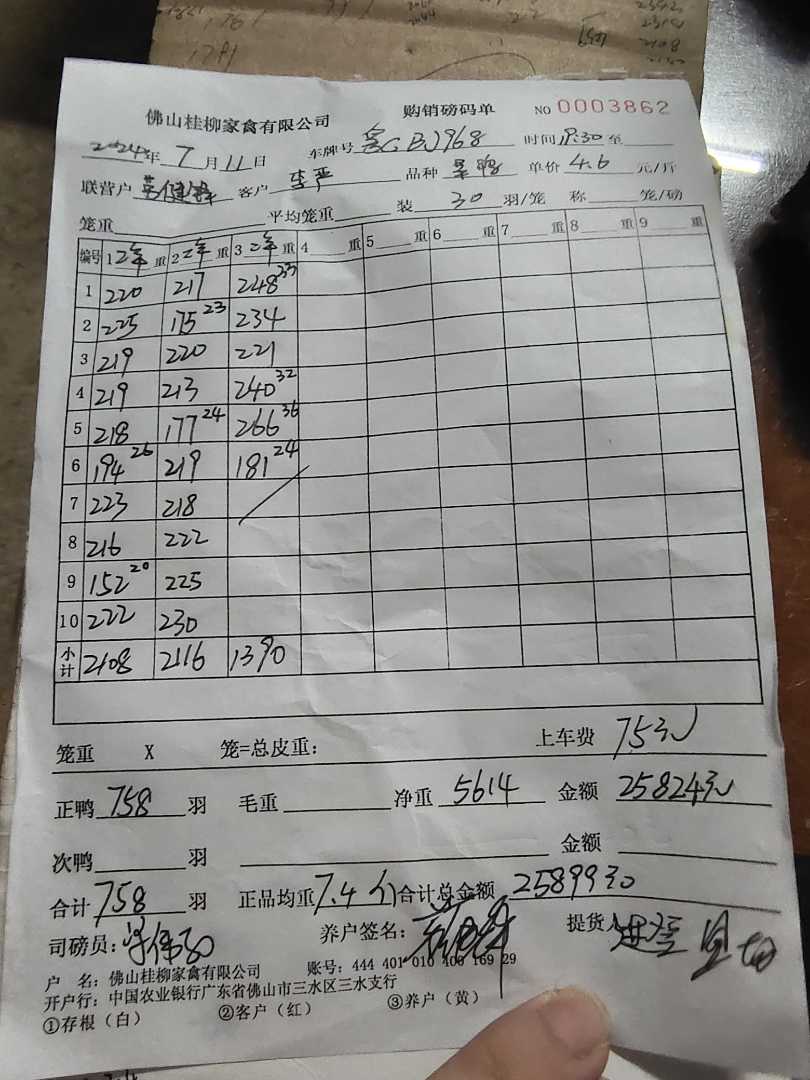 佛山桂柳家禽有限公司 购销磅码单 NO 0003862
2024年 7月11日 车牌号 968 时间19:30至
联营户 客户 李严 品种 单价 4.6 元/斤
笼重 平均笼重 装 30 羽/笼 称 笼/磅
编号 1 二年 重 2 二年 重 3 二年 重 4 重 5 重 6 重 7 重 8 重 9 重
1 220 217 248 33
2 225 175 23 234
3 219 220 221
4 219 213 240 32
5 218 177 24 266 36
6 194 26 219 181 24
7 223 218
8 216 222
9 152 20 225
10 222 230
小计 2108 2116 1390
笼重 X 笼=总皮重: 上车费 75元
正鸭 758 羽 毛重 净重 5614 金额 25824元
次鸭 羽 金额
合计 758 羽 正品均重 7.4 合计总金额 25899元
司磅员: 养户签名: 提货人
户 名: 佛山桂柳家禽有限公司 账号: 444 401 010 400 169 29
开户行: 中国农业银行广东省佛山市三水区三水支行
①存根（白） ②客户（红） ③养户（黄）